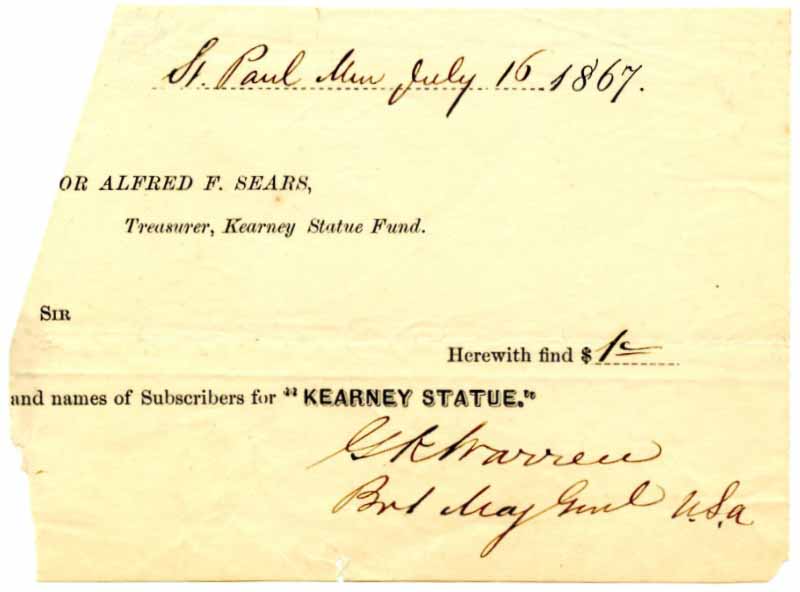 St. Paul Min July 16 1867.
OR ALFRED F. SEARS,
Treasurer, Kearney Statue Fund.
SIR
Herewith find $ 1=
and names of Subscribers for "KEARNEY STATUE."
GKWarren
Bvt Maj Genl U.S.a